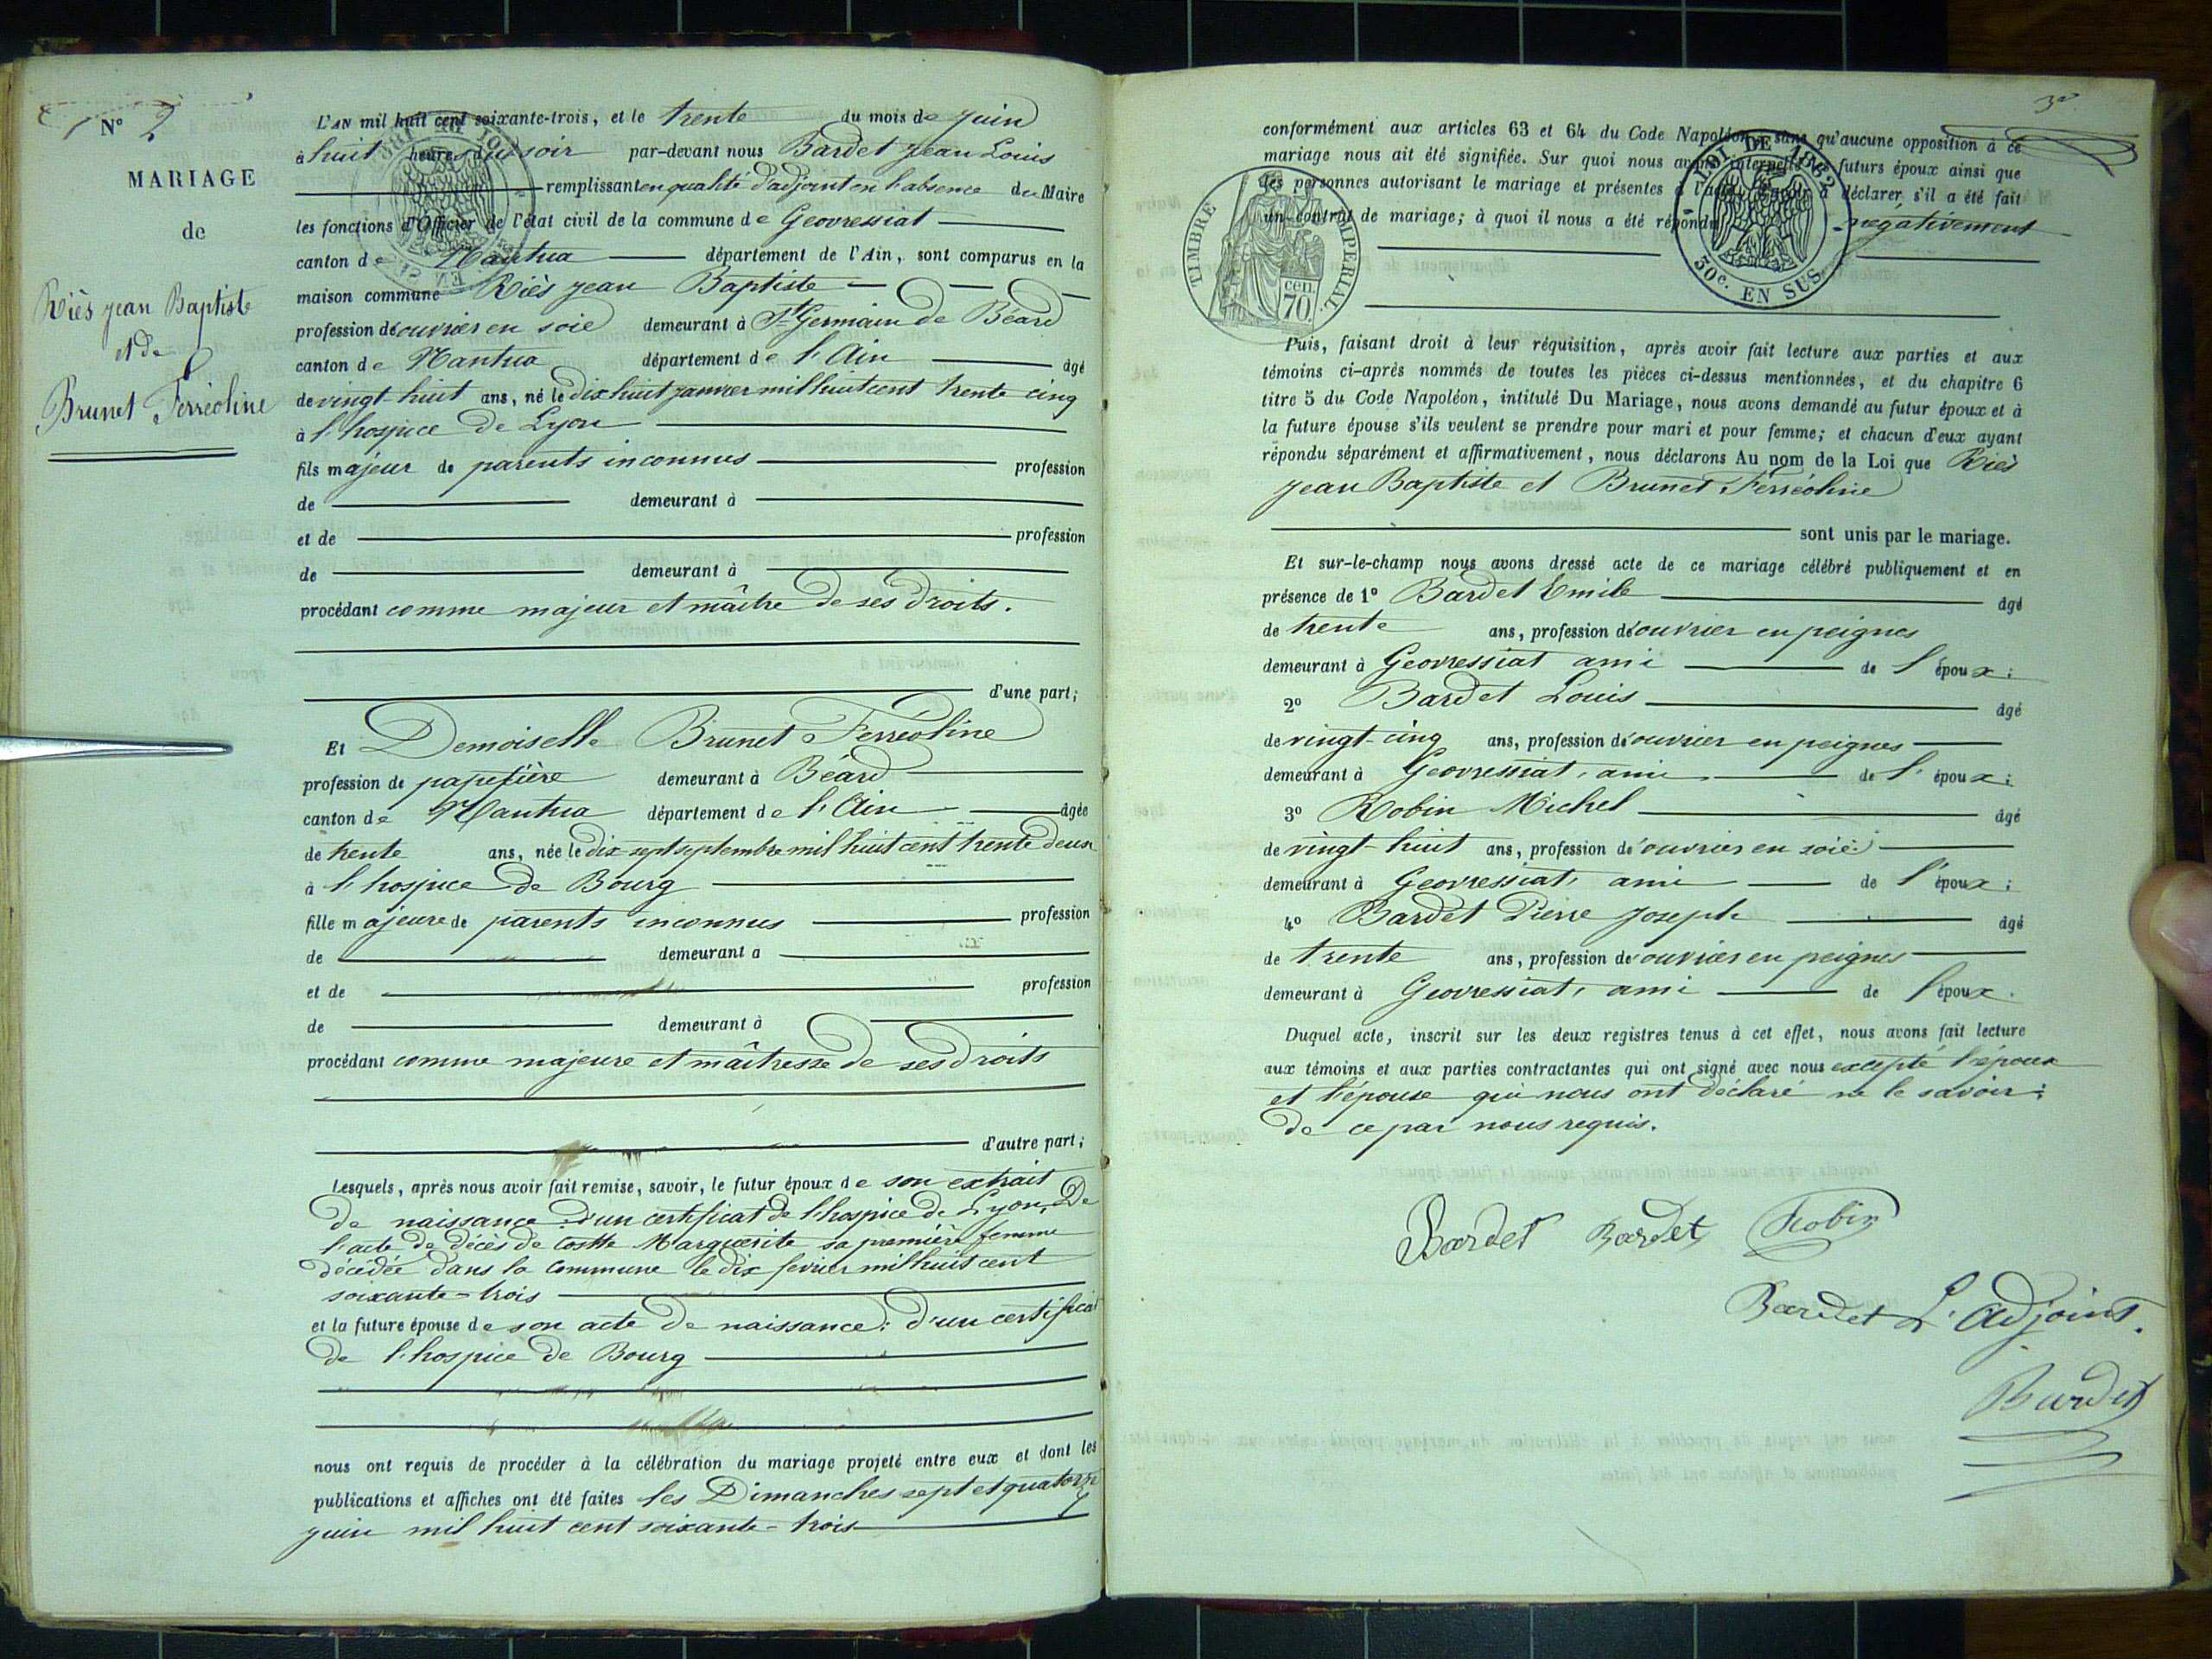 N° 2
MARIAGE
de
Riès Jean Baptiste
et de
Brunet Ferréoline
L'AN mil huit cent soixante-trois, et le trente du mois de juin
à huit heures du soir par-devant nous Bardet Jean Louis
remplissant en qualité d'adjoint en l'absence du Maire
les fonctions d'Officier de l'état civil de la commune de Geovressiat
canton de Nantua département de l'Ain, sont comparus en la
maison commune Riès Jean Baptiste
profession d'ouvrier en soie demeurant à St Germain de Béard
canton de Nantua département de l'Ain âgé
de vingt huit ans, né le dix huit janvier mil huit cent trente cinq
à l'hospice de Lyon
fils majeur de parents inconnus profession
de demeurant à
et de profession
de demeurant à
procédant comme majeur et maître de ses droits.
d'une part;
Et Demoiselle Brunet Ferréoline
profession de papetière demeurant à Béard
canton de Nantua département de l'Ain âgée
de trente ans, née le dix sept septembre mil huit cent trente deux
à l'hospice de Bourg
fille majeure de parents inconnus profession
de demeurant à
et de profession
de demeurant à
procédant comme majeure et maîtresse de ses droits
d'autre part;
Lesquels, après nous avoir fait remise, savoir, le futur époux de son extrait
de naissance d'un certificat de l'hospice de Lyon, De
l'acte de décès de Marguerite sa première femme
décédée dans la commune le dix février mil huit cent
soixante-trois
et la future épouse de son acte de naissance: d'un certificat
de l'hospice de Bourg
nous ont requis de procéder à la célébration du mariage projeté entre eux et dont les
publications et affiches ont été faites les Dimanches sept et quatorze
juin mil huit cent soixante-trois
conformément aux articles 63 et 64 du Code Napoléon, sans qu'aucune opposition à ce
mariage nous ait été signifiée. Sur quoi nous avons interpellé les futurs époux ainsi que
les personnes autorisant le mariage et présentes à l'acte, à déclarer s'il a été fait
un contrat de mariage; à quoi il nous a été répondu négativement
TIMBRE IMPERIAL
cen. 70.
LOI DE 1862
50c. EN SUS
Puis, faisant droit à leur réquisition, après avoir fait lecture aux parties et aux
témoins ci-après nommés de toutes les pièces ci-dessus mentionnées, et du chapitre 6
titre 5 du Code Napoléon, intitulé Du Mariage, nous avons demandé au futur époux et à
la future épouse s'ils veulent se prendre pour mari et pour femme; et chacun d'eux ayant
répondu séparément et affirmativement, nous déclarons Au nom de la Loi que Riès
Jean Baptiste et Brunet Ferréoline
sont unis par le mariage.
Et sur-le-champ nous avons dressé acte de ce mariage célébré publiquement et en
présence de 1° Bardet Emile âgé
de trente ans, profession d'ouvrier en peignes
demeurant à Geovressiat ami de l'époux:
2° Bardet Louis âgé
de vingt-cinq ans, profession d'ouvrier en peignes
demeurant à Geovressiat, ami de l'époux:
3° Robin Michel âgé
de vingt-huit ans, profession d'ouvrier en soie
demeurant à Geovressiat, ami de l'époux;
4° Bardet Pierre Joseph âgé
de trente ans, profession d'ouvrier en peignes
demeurant à Geovressiat, ami de l'époux.
Duquel acte, inscrit sur les deux registres tenus à cet effet, nous avons fait lecture
aux témoins et aux parties contractantes qui ont signé avec nous excepté l'époux
et l'épouse qui nous ont déclaré ne le savoir:
de ce par nous requis.
Bardet Bardet Robin
Bardet L'adjoint.
Bardet